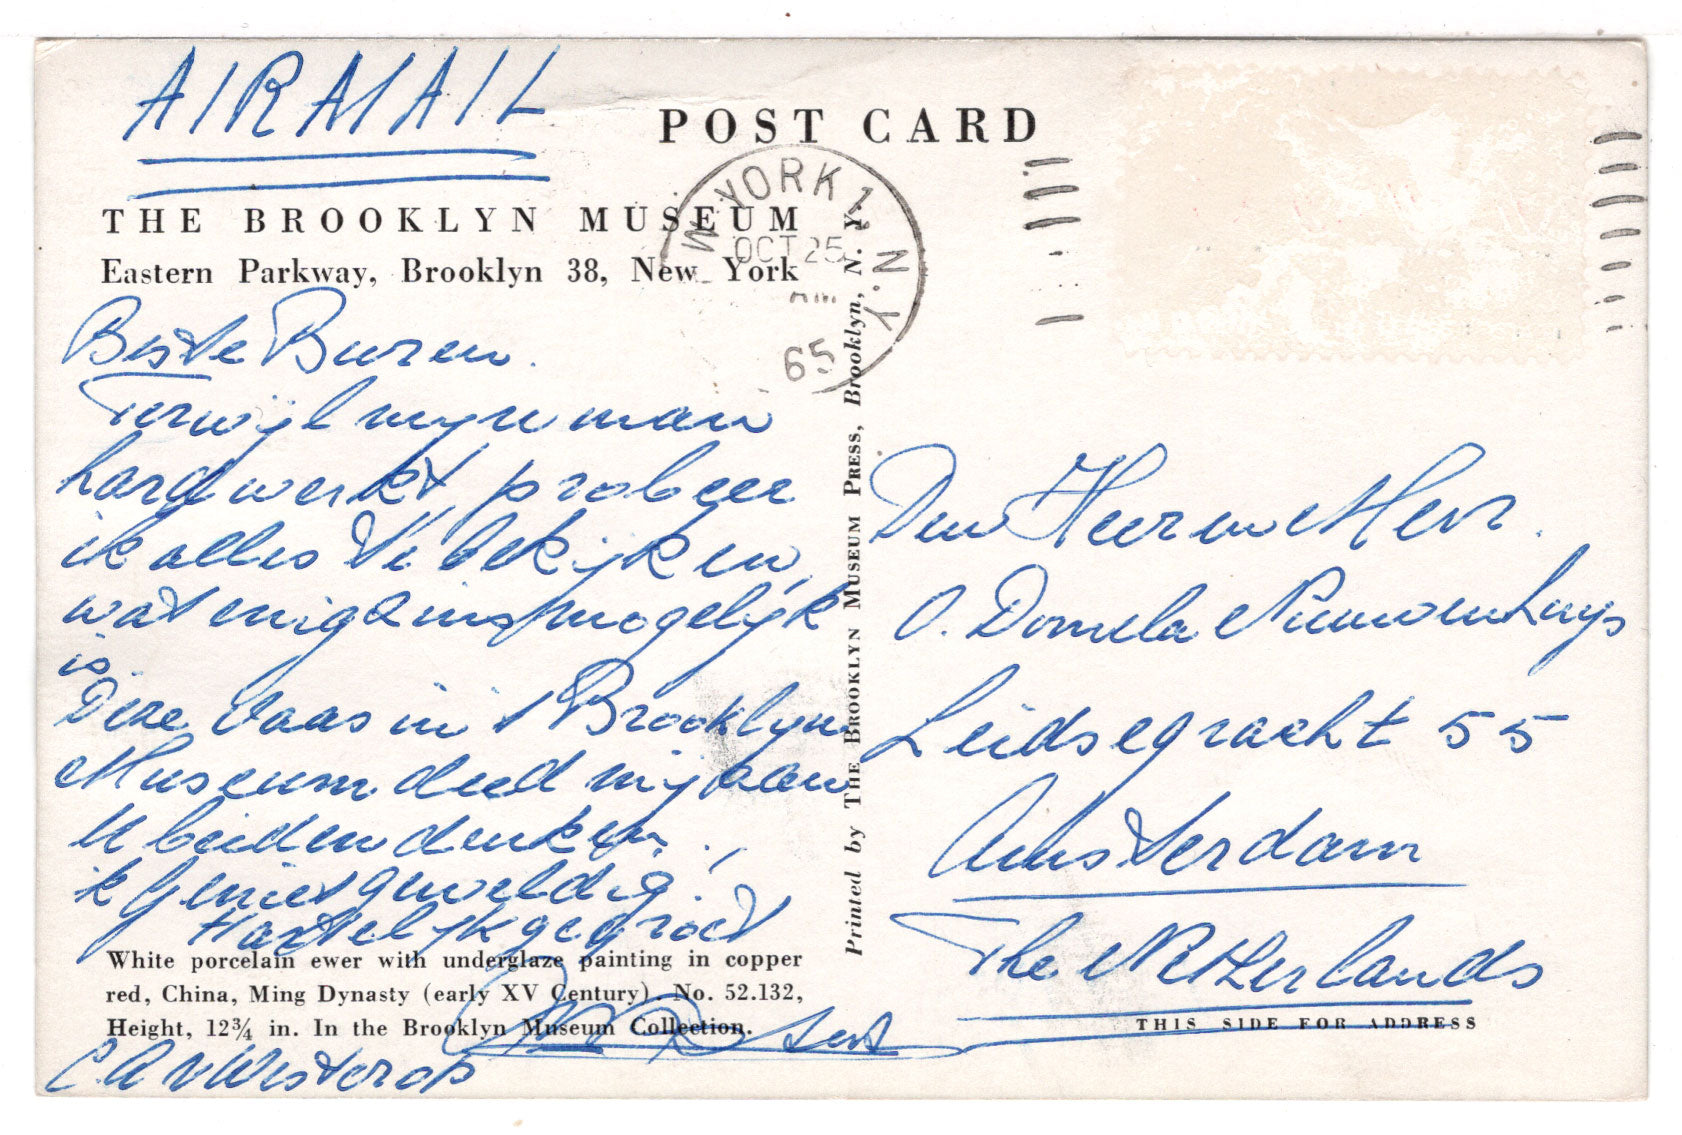 AIRMAIL
POST CARD
THE BROOKLYN MUSEUM
Eastern Parkway, Brooklyn 38, New York
W YORK 1, N.Y.
OCT 25
AM
65
Beste Buren.
Terwijl mijn man
hard werkt, probeer
ik alles te bekijken,
wat enigszins mogelijk
is.
Deze vaas in 't Brooklyn
Museum deed mij aan
U beiden denken.
ik geniet geweldig!
Hartelijk gegroet
C.A. v Westerop
White porcelain ewer with underglaze painting in copper
red, China, Ming Dynasty (early XV Century). No. 52.132,
Height, 12¾ in. In the Brooklyn Museum Collection.
Printed by THE BROOKLYN MUSEUM PRESS, Brooklyn, N. Y.
Den Heer en Mevr.
O. Domela Nieuwenhuys
Leidsegracht 55
Amsterdam
The Netherlands
THIS SIDE FOR ADDRESS